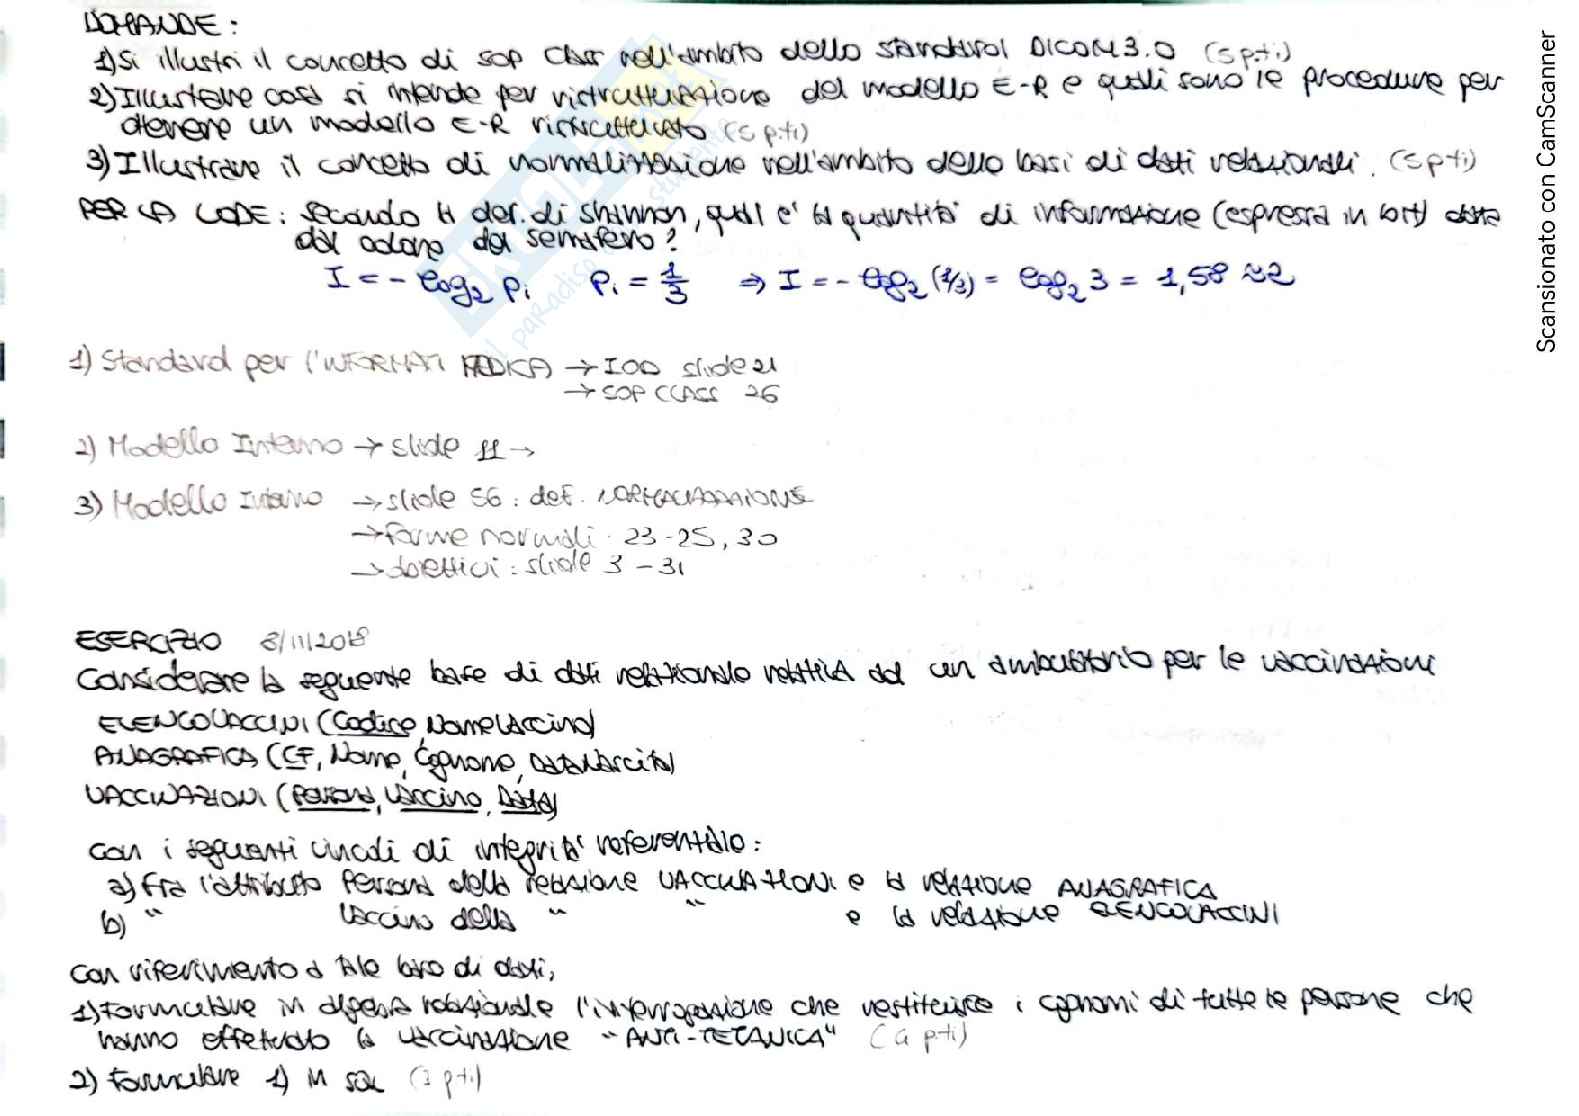 DOMANDE:
1) Si illustri il concetto di SOP Class nell'ambito dello standard DICOM 3.0 (5 pti)
2) Illustrare cosa si intende per ristrutturazione del modello E-R e quali sono le procedure per
ottenere un modello E-R ristrutturato (5 pti)
3) Illustrare il concetto di normalizzazione nell'ambito delle basi di dati relazionali. (5 pti)
PER LA LODE: Secondo la def. di Shannon, qual è la quantità di informazione (espressa in bit) data
dal colore del semaforo?
I = - log₂ Pi Pi = 1/3 ⇒ I = - log₂ (1/3) = log₂ 3 = 1,58 ≈ 2
1) Standard per l'INFORMATI MEDICA → IOD slide 21
→ SOP CLASS 26
2) Modello Interno → slide 11 →
3) Modello Interno → slide 56: def. NORMALIZZAZIONE
→ forme normali: 23-25, 30
→ obiettivi: slide 3 - 31
ESERCIZIO 8/11/2018
Considerare la seguente base di dati relazionale relativa ad un ambulatorio per le vaccinazioni
ELENCOVACCINI (Codice, NomeVaccino)
ANAGRAFICA (CF, Nome, Cognome, DataNascita)
VACCINAZIONI (Persona, Vaccino, Data)
con i seguenti vincoli di integrità referenziale:
a) fra l'attributo Persona della relazione VACCINAZIONI e la relazione ANAGRAFICA
b) " Vaccino della " " e la relazione ELENCOVACCINI
Con riferimento a tale base di dati,
1) Formulare in algebra relazionale l'interrogazione che restituisce i cognomi di tutte le persone che
hanno effettuato la vaccinazione "ANTI-TETANICA" (4 pti)
2) Formulare 1) in SQL (3 pti)
Scansionato con CamScanner